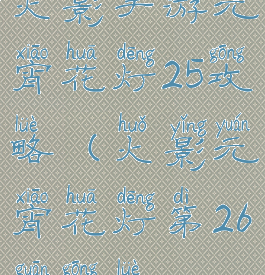 火影手游元
xiāo huā dēng gōng
宵花灯25攻
lüè huǒ yǐng yuán
略（火影元
xiāo huā dēng dì
宵花灯第26
guān gōng lüè